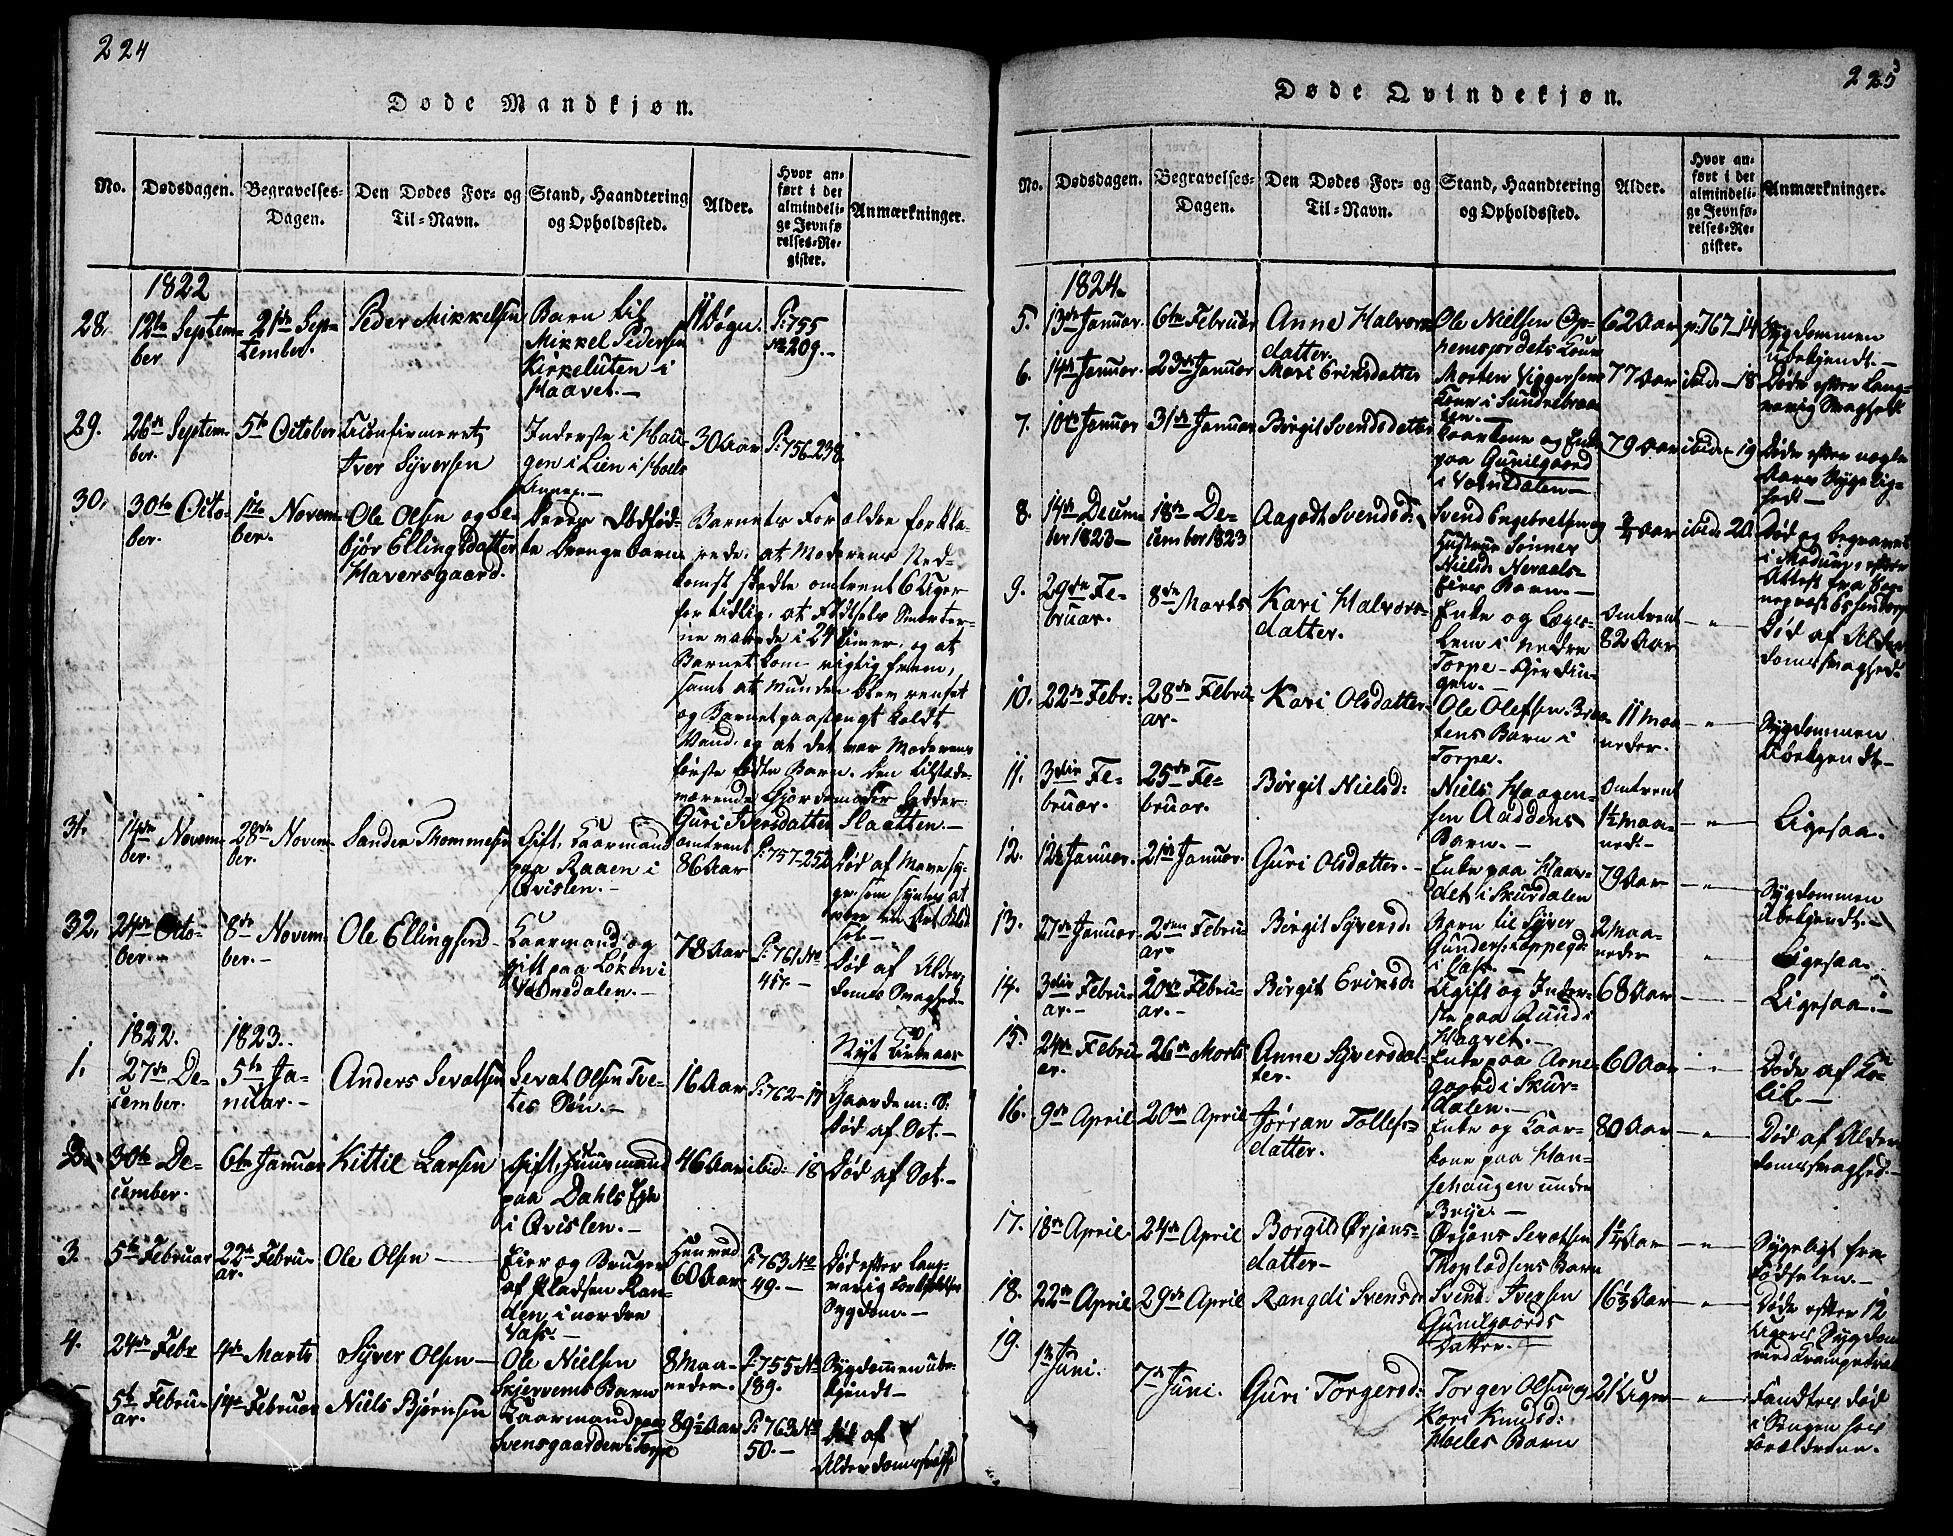 224
Døde Mandkjøn.
No.
Dødsdagen.
Begravelses-
Dagen.
Den Dødes For- og
Til-Navn.
Stand, Haandtering
og Opholdssted.
Alder.
Hvor an-
ført i det
almindeli-
ge Jevnfø-
relses-Re-
gister.
Anmærkninger.
1822
28.
12te Septem-
ber
21de Sep-
tember.
Peder Mikkelsen
Barn til
Mikkel Pedersen
Kirkeluten i
Haavet.—
11 Døgn.
P: 755
No 209.—
29.
26de Septem-
ber.
5te October
Uconfirmeret
Iver Syversen
Inderste i Hau-
gen i Lien i Hols
Annex.—
30 Aar
P: 756-238
30.
30te Octo-
ber.
1ste Novem-
ber.
Ole Olsen og
Ellingsdatter
Haversgaard.
Deres Dødfød-
te Drengebarn
Barnets Forældre forkla-
rede, at Moderens Ned-
komst skedte omtrent 6 Uger
for tidlig, at Fødsels Smerter-
ne varede i 24 Timer, og at
Barnet kom rigtig frem,
samt at Munden blev renset
og Barnet paasprængt koldt
Vand, og at det var Moderens
første fødte Barn. Den tilstede-
værende Gjordemoder hedder
Guri Iversdatter Slaatten.—
31.
14de Novem-
ber.
28de Novem-
ber.
Sander Thommesen
Gift, Kaarmand
paa Raaen i
Qvislen.—
omtrent
86 Aar
P: 757-252
Død af Mavesy-
ge, som syntes at
være
32.
24de Octo-
ber.—
8de Novem-
ber.—
Ole Ellingsen
Kaarmand og
gift paa Løken i
Vatsnedalen.—
78 Aar
P: 761 No
45.—
Død af Alder-
doms Svaghed.
1822.
1823.
Nyt Kirkeaar
1.
27de De-
cember.
5te Ja-
nuar.—
Anders Sevatsen
Sevat Olsen Tve-
tes Søn.—
16 Aar
P: 762-17
Gaardm: S:
Død af Sot.—
2.
30te De-
cember.
6te Januar
Kittil Larsen
Gift, Huusmand
paa Dahls Eje
i Qvislen.—
46 Aar
ibid: 18
Død af Sot.—
3.
5te Februar
22de Febru-
ar.
Ole Olsen—
Eier og Bruger
af Pladsen Ran-
den i nordre
Vass.—
henved
60 Aar
P: 763 No
49.—
Død efter lang-
varig
Sygdom.—
4.
24de Febr
4de Marts
Syver Olsen—
Ole Nielsen
Skjervems Barn
8 Maa-
neder.
P: 755 No
189.
Sygdommen ube-
kjendt—
5te Febru-
ar.
14de Februar
Niels Bjørnsen
Kaarmand paa
Svensgaarden i Torpe
89½ Aar
P: 763 No
50.—
Død af
225
Døde Qvindekjøn.
No.
Dødsdagen.
Begravelses-
Dagen.
Den Dødes For- og
Til-Navn.
Stand, Haandtering
og Opholdssted.
Alder.
Hvor an-
ført i det
almindeli-
ge Jevnfø-
relses-Re-
gister.
Anmærkninger.
1824.
5.
13de Januar.
6te Februar
Anne Halvors-
datter.
Ole Nielsen Op-
hemsjordets Kone
62 Aar
p. 767-14
Sygdommen
ubekjendt.—
6.
14de Januar.
23de Januar
Mari Eriksdatter
Morten Viggersens
Kone i Sundrebraa-
ten.—
77 Aar
ibid:-18
Døde efter lang-
varig Svaghed.
7.
10de Januar
31de Januar
Birgit Svendsdatter
Kaarkone og Enke
paa Gunilgaard
i Vatnedalen—
79 Aar
ibid:-19
Døde efter nogle
Aars Sygelig-
hed—
8.
14de Decem-
ber 1823—
18de De-
cember 1823
Aagodt Svendsd:
Svend Engebretsen og
Hustrue Sønner
Nielsd: Nevaals-
Eies Barn.—
¾ Aar
ibid: 20.
Død og begravet
i Modum, efter
Attest fra Sog-
nepræst Essendrop
9.
29de Fe-
bruar.
8de Marts
Kari Halvors-
datter.
Enke og Lægs-
lem i nedre
Torpe-Gjerdin-
gen.—
Omtrent
82 Aar
— " —
Død af Alder-
domssvaghed.
10.
22de Febr:
28de Febru-
ar.
Kari Olsdatter
Ole Olessen Braa-
tens Barn i
Torpe.
11 Maa-
neder.
— " —
Sygdommen
ubekjendt—
11.
3die Fe-
bruar.
25de Fe-
bruar.
Birgit Nielsd:
Niels Haagen-
sen Aaddens
Barn.—
Omtrent
1½ Maa-
ned.—
— " —
Ligesaa.
12.
12te Januar.
21de Januar.
Guri Olsdatter.
Enke paa Haar-
det i Skurdalen
79 Aar
— " —
Sygdommen
ubekjendt.—
13.
27de Januar.
2den Febru-
ar
Birgit Syversd:
Barn til Syver
Gunders: Koppegd:
i Vass.—
2 Maa-
neder
"
Ligesaa.
14.
3die Febru-
ar.—
20de Febru-
ar.—
Birgit Eriksd:
Ugift og Inder-
ste paa Ruud i
Haavet.—
68 Aar
Ligesaa.—
15.
24de Febru-
ar.
26de Marts
Anne Syversdat-
ter.
Enke paa Arne-
gaard i Skur-
dalen.—
60 Aar
Døde af Ko-
lik.—
16.
9de April
20de April
Jørran Tollefs-
datter.
Enke og Kaar-
kone paa Han-
sehaugen under
Brye.—
80 Aar
— " —
Død af Alder-
domssvaghed.—
17.
18de April.
24de April
Borgild Ørjans-
datter—
Ørjans Sevatsen
Thopladsens Barn
1¼ Aar
— " —
Sygeligt fra
Fødselen.—
18.
22de April
29de April
Rangdi Svensd:
Svend Iversen
Gunilgaards
Datter.—
16⅓ Aar
— " —
Døde efter 12
Ugers Sygdom
med
19.
1ste
Juni.
7de
Juni.
Guri Torgersd:
Torger Olsen og
Kari Knudsd:
Hoeles Barn
21 Uger
— " —
Fandtes død
i Sengen hos
Forældrene.